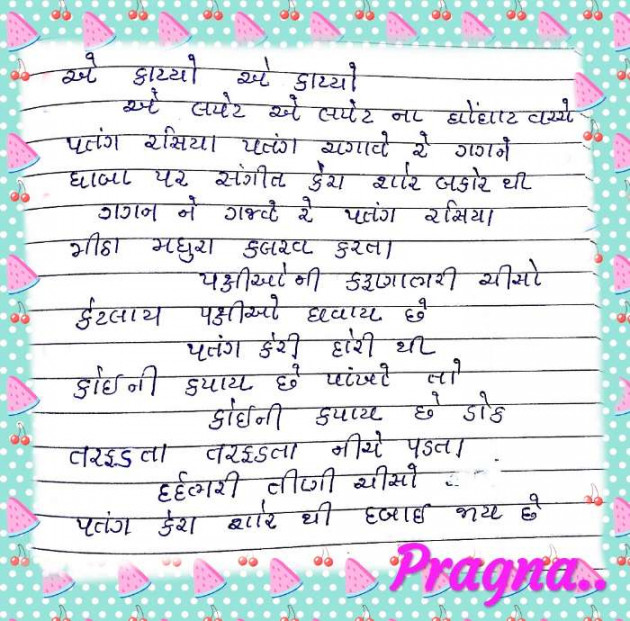 એ કાપ્યો એ કાપ્યો
એ લપેટ એ લપેટ ના ઘોંઘાટ વચ્ચે
પતંગ રસિયા પતંગ ચગાવે રે ગગને
ધાબા પર સંગીત કેરા શોર બકોર થી
ગગન ને ગજવે રે પતંગ રસિયા
મીઠા મધુરા કલરવ કરતા
પક્ષીઓની કરૂણાભરી ચીસો
કેટલાય પક્ષીઓ ઘવાય છે
પતંગ કેરી દોરી થી
કોઈની કપાય છે પાંખો તો
કોઈની કપાય છે ડોક
તરફડતા તરફડતા નીચે પડતા
દર્દભરી તીણી ચીસો
પતંગ કેરા શોર થી દબાઈ જાય છે
Pragna..